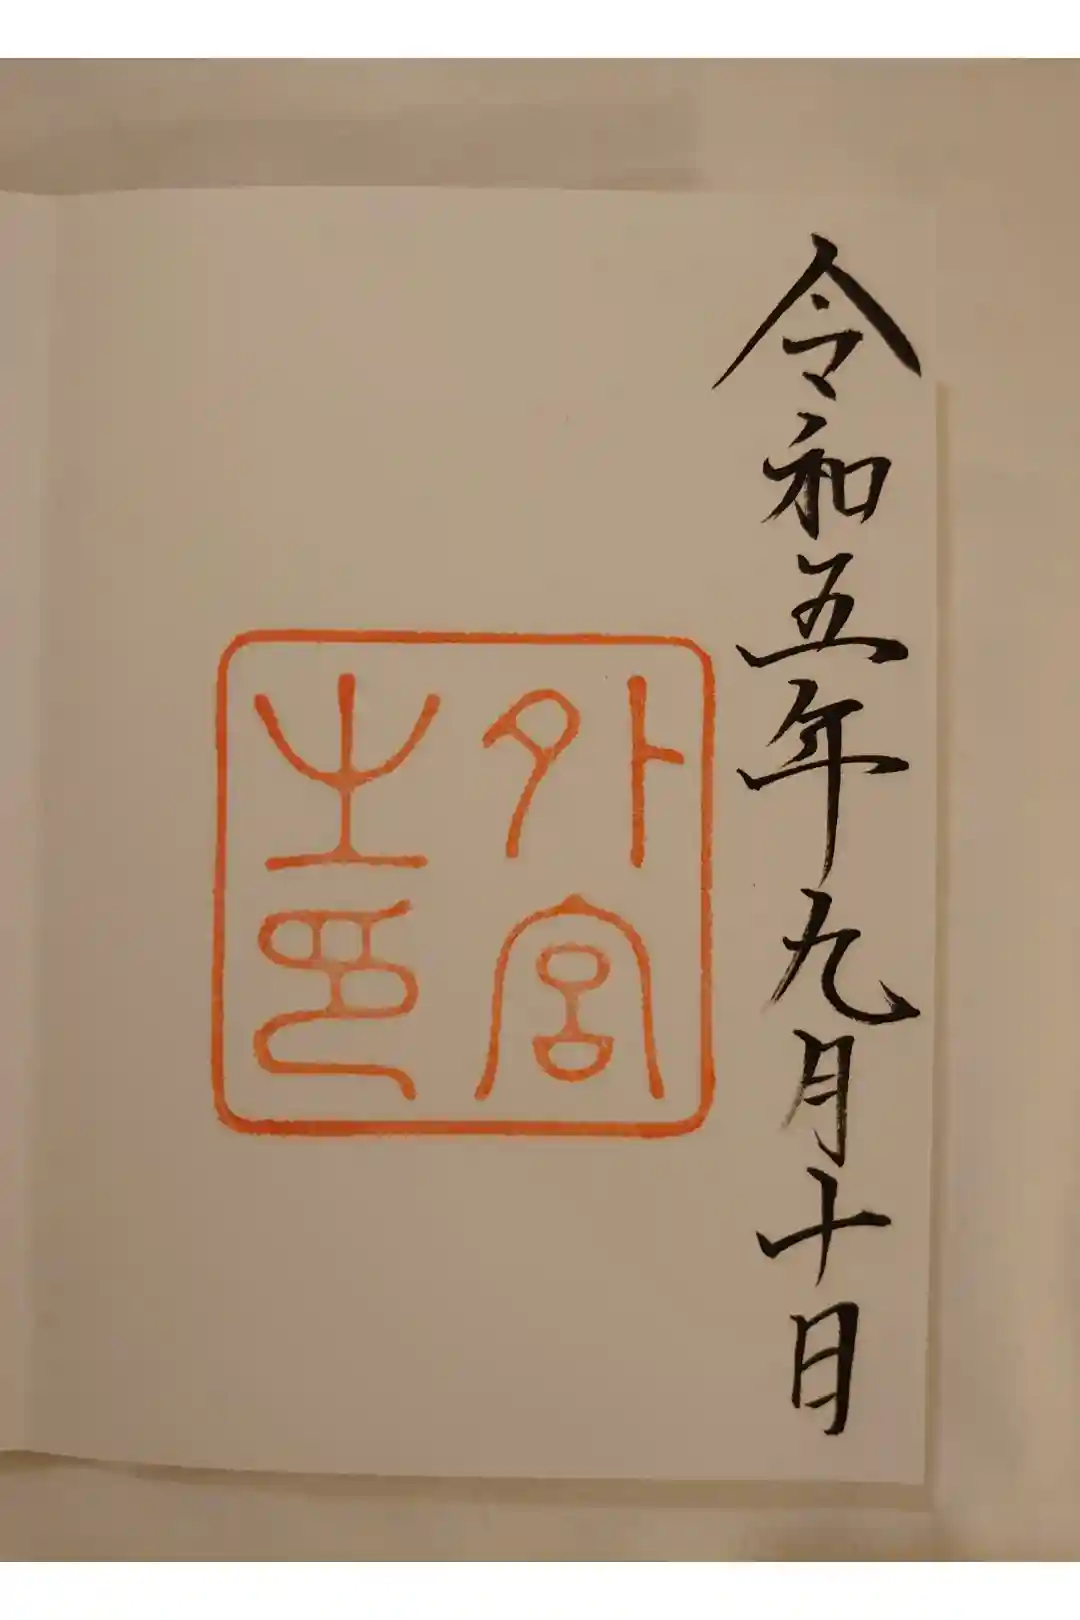 令和五年九月十日
外宮
之印